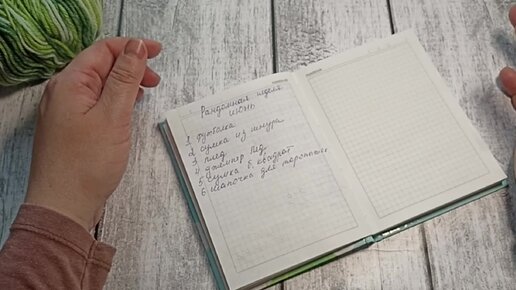 Рандомная неделя
ИЮНЬ
1. футболка
2. сумка из шнура
3. плед
4. джемпер Пед.
5. сумка б. квадрат
6. шапочка для торопыжек